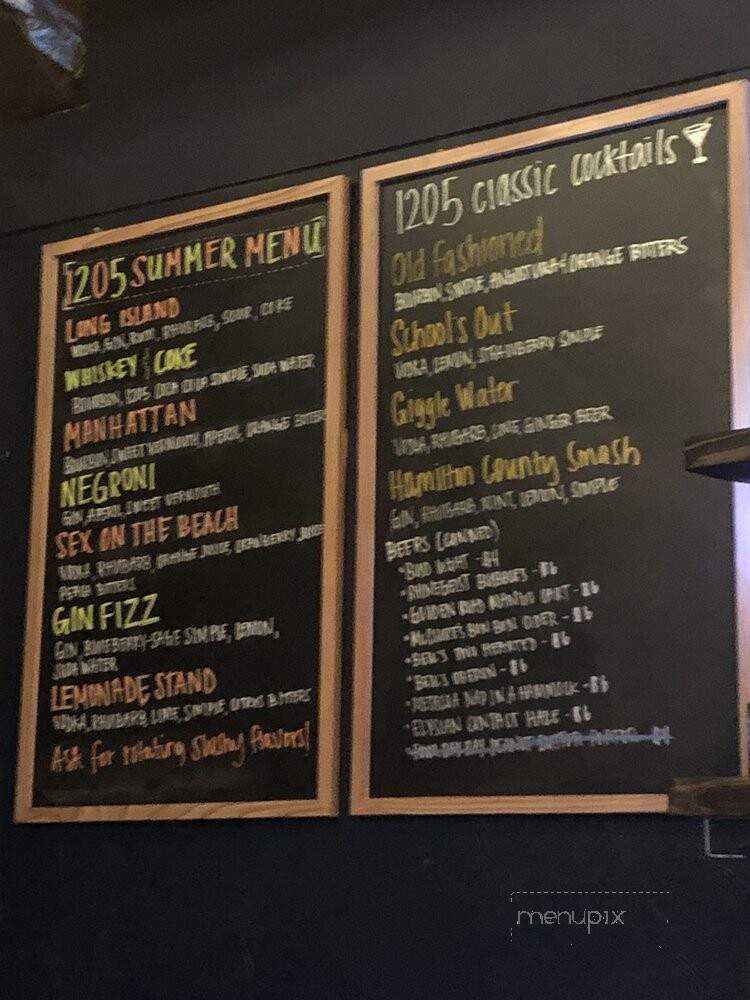 1205 SUMMER MENU
LONG ISLAND
VODKA, GIN, RUM, RHUBARB, SOUR, COKE
WHISKEY & COKE
BOURBON, 1205 COCA COLA SIMPLE, SODA WATER
MANHATTAN
BOURBON, SWEET VERMOUTH, APEROL, ORANGE BITTERS
NEGRONI
GIN, APEROL, SWEET VERMOUTH
SEX ON THE BEACH
VODKA, RHUBARB, ORANGE JUICE, CRANBERRY JUICE
PEACH BITTERS
GIN FIZZ
GIN, BLUEBERRY-SAGE SIMPLE, LEMON,
SODA WATER
LEMONADE STAND
VODKA, RHUBARB, LIME, SIMPLE, CITRUS BITTERS
Ask for rotating slushy flavors!
1205 classic cocktails
Old Fashioned
BOURBON, SIMPLE, ANGOSTURA + ORANGE BITTERS
School's Out
VODKA, LEMON, STRAWBERRY SIMPLE
Giggle Water
VODKA, RHUBARB, LIME, GINGER BEER
Hamilton County Smash
GIN, RHUBARB, MINT, LEMON, SIMPLE
BEERS (CANNED)
• BUD LIGHT - $4
• RHINEGEIST BUBBLES - $6
• GOLDEN ROAD MANGO CART - $6
- $6
- $6
• BELL'S OBERON - $6
- $6
• ELYSIAN CONTACT HAZE - $6
menupix